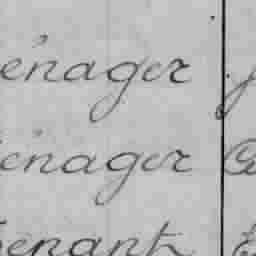 énager
énager
enant